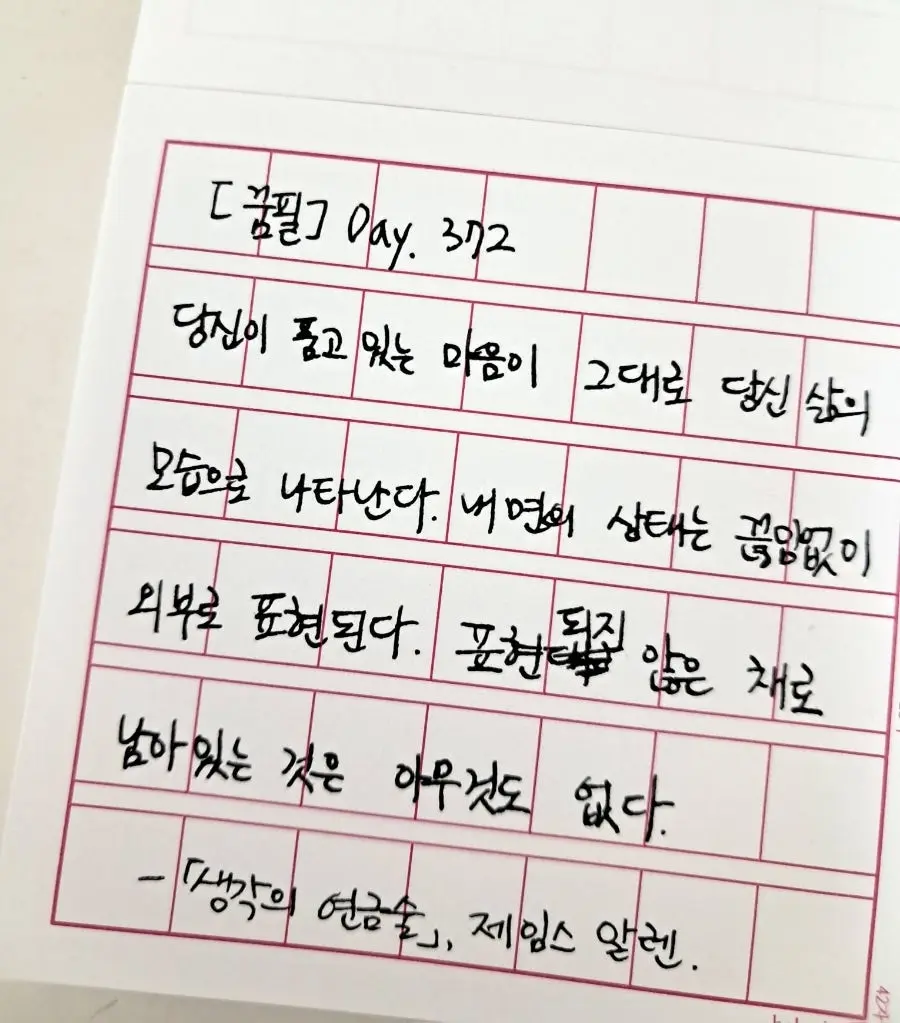 [꿈필] Day. 372
당신이 품고 있는 마음이 그대로 당신 삶의
모습으로 나타난다. 내면의 상태는 끊임없이
외부로 표현된다. 표현되진 않은 채로
남아 있는 것은 아무것도 없다.
- 「생각의 연금술」, 제임스 알렌.